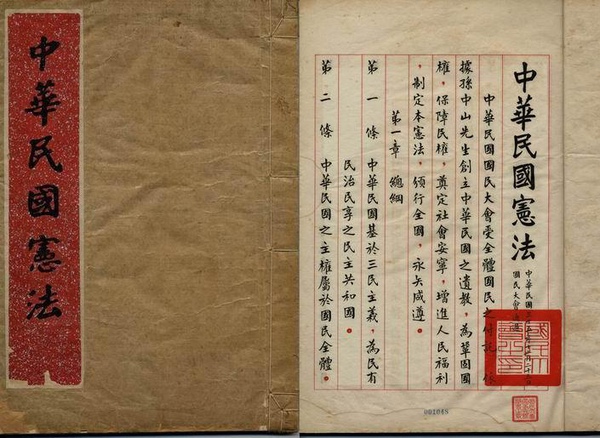 中華民國憲法
中華民國憲法
中華民國
國民大會
中華民國國民大會受全體國民之付託，依
據孫中山先生創立中華民國之遺教，為鞏固國
權，保障民權，奠定社會安寧，增進人民福利
，制定本憲法，頒行全國，永矢咸遵。
第一章 總綱
第一條 中華民國基於三民主義，為民有
民治民享之民主共和國。
第二條 中華民國之主權屬於國民全體。
001048